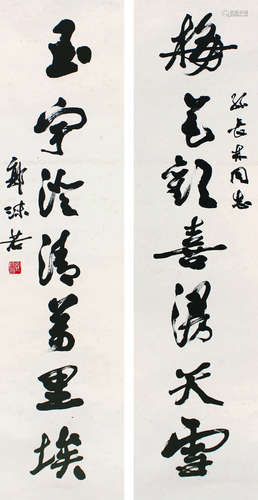 梅花歡喜漫天雪
孙長林同志
玉宇澄清萬里埃
郭沫若